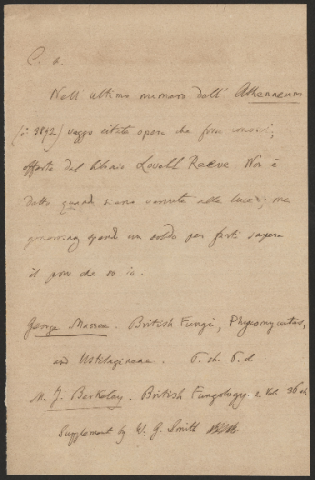 C. a.
Nell' ultimo numero dell' Athenaeum
(n° 3892) veggo citate opere che forse conosci,
offerte dal libraio Lovell Reeve. Non è
detto quando siano venute alla luce; ma
spendo un soldo per farti sapere
il poco che so io.
George Massee. British Fungi, Phycomycetes,
and Ustilagineae. 6. sh. 6. d
M. J. Berkeley. British Fungology. 2. Vol. 36 sh
Supplement by W. G. Smith